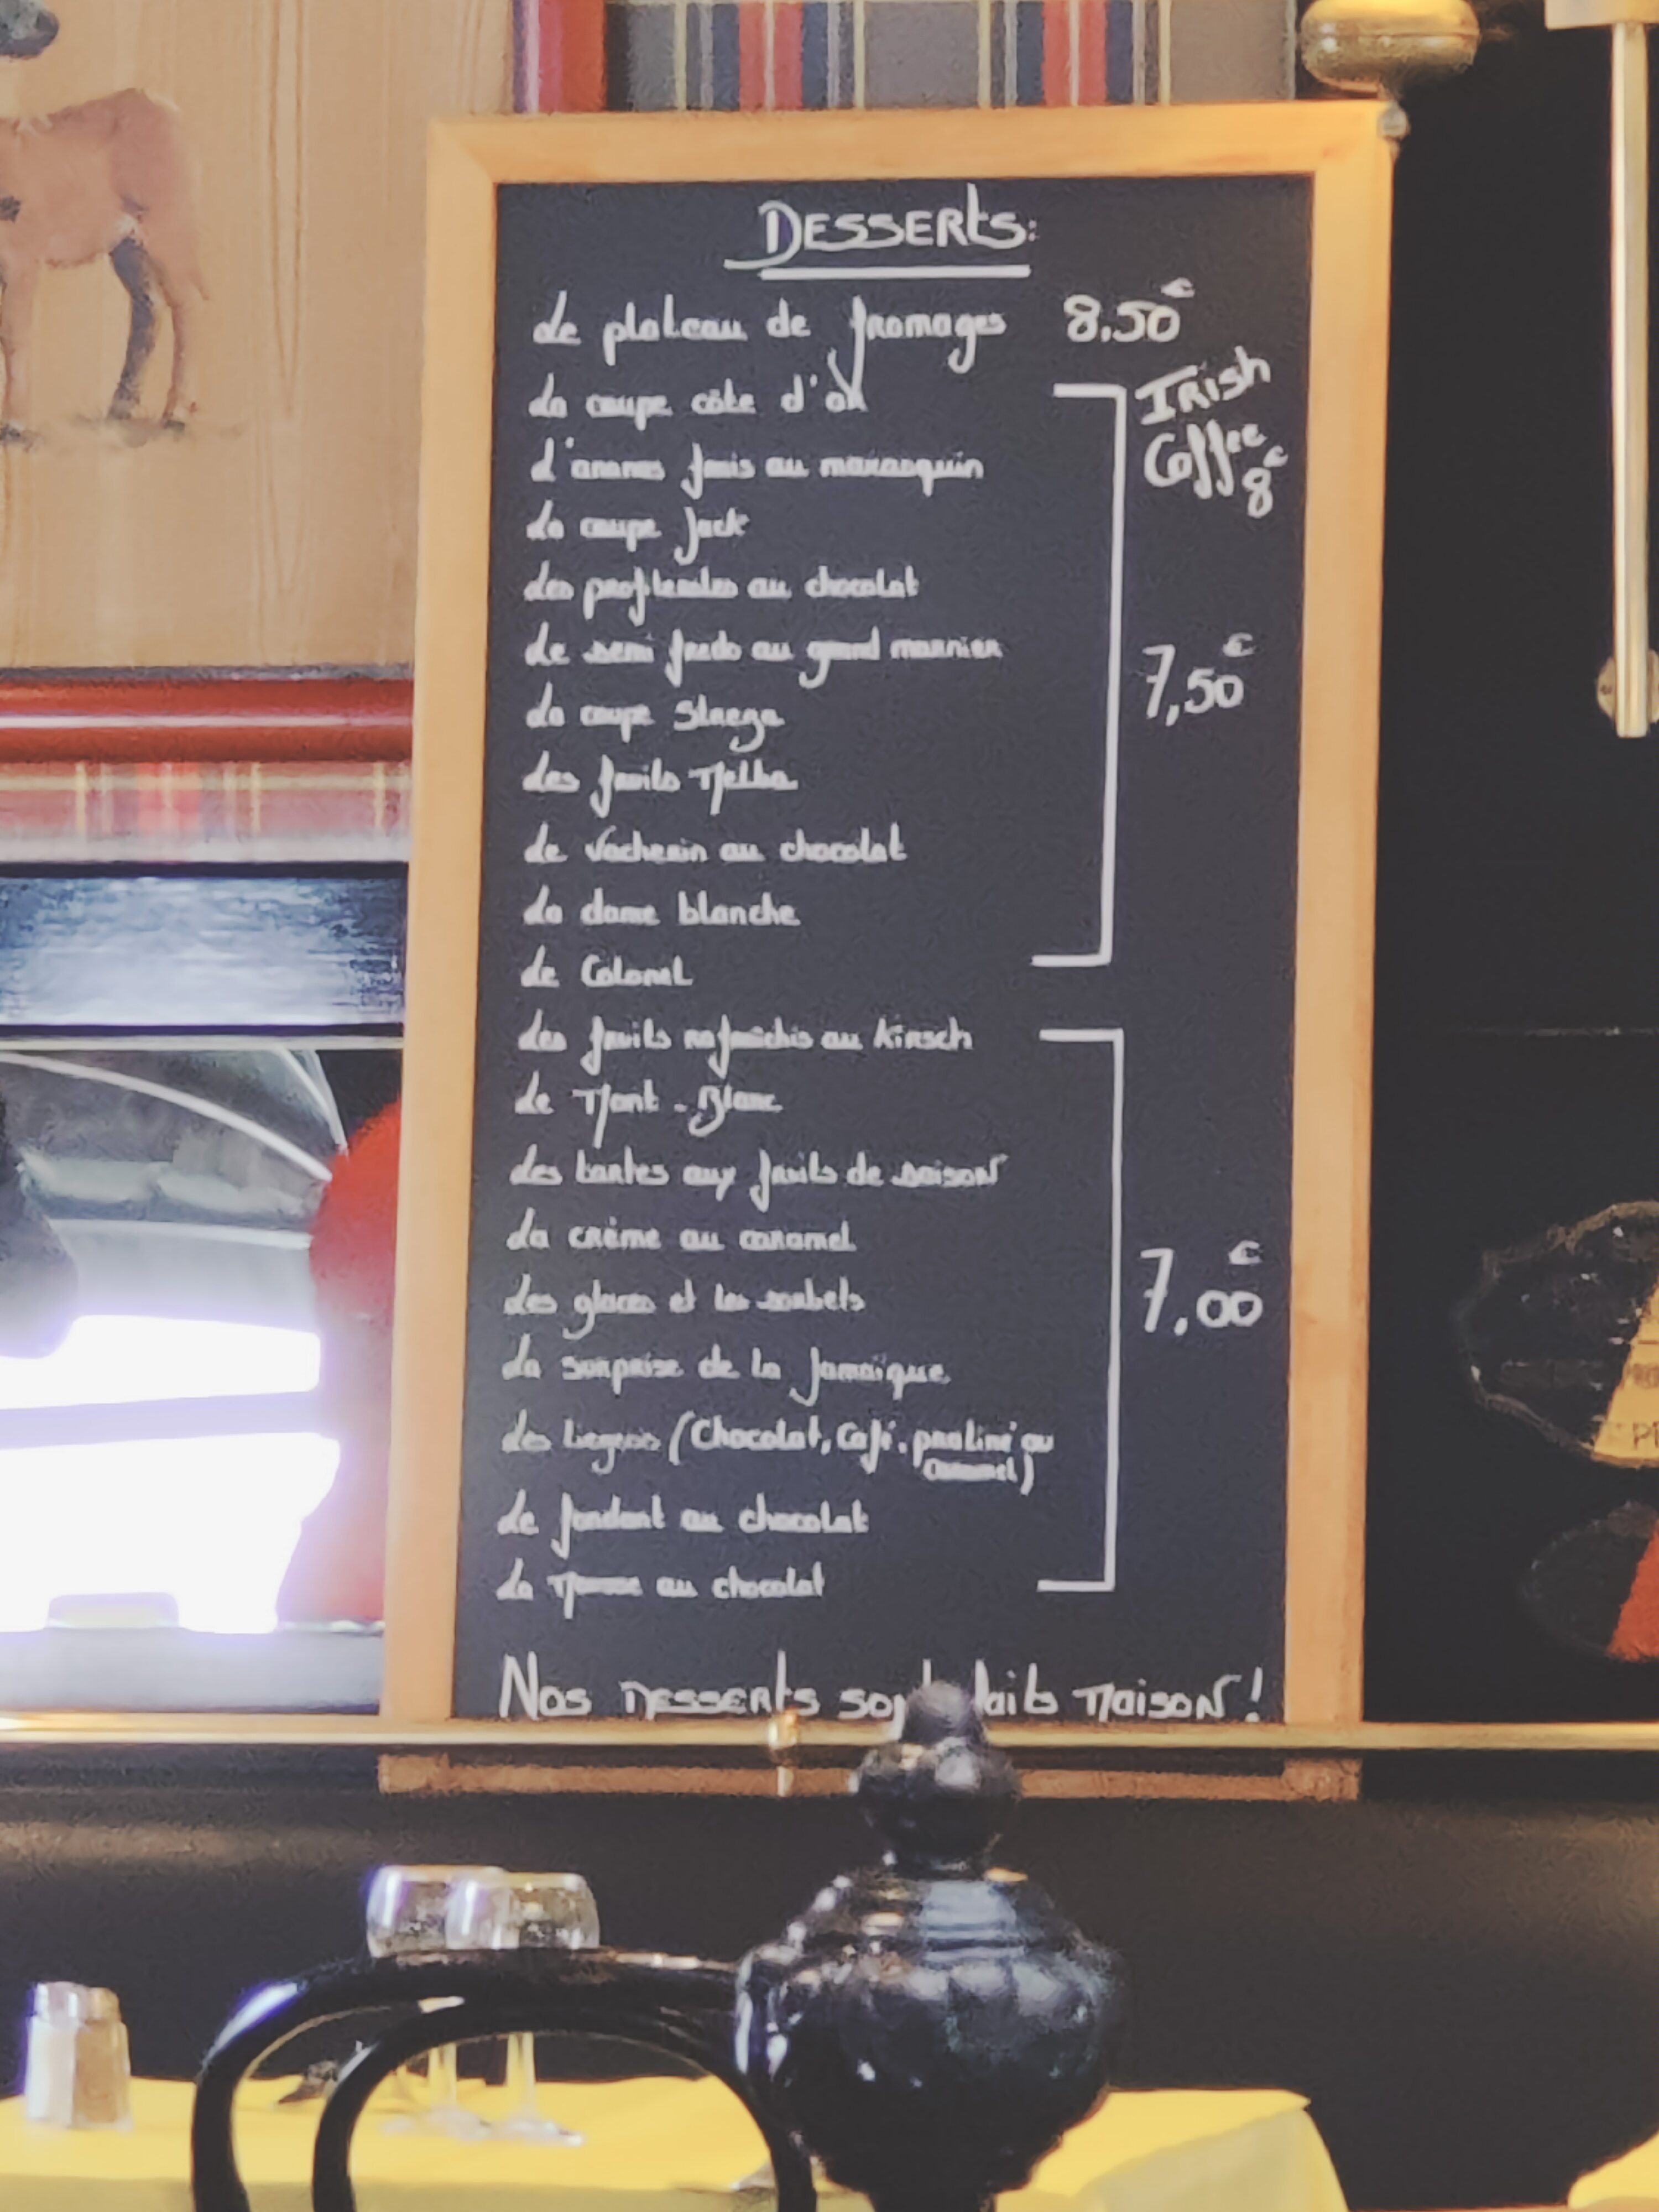 DESSERts:
Le plateau de fromages 8.50€
La coupe côte d'or
L'ananas frais au marasquin
La coupe Jack
Les profiteroles au chocolat
Le semi fredo au grand marnier
La coupe Strega
Les fruits Melba
Le Vacherin au chocolat
La dame blanche
Le Colonel
Irish
Coffee
8€
7,50€
Les fruits rafraichis au Kirsch
Le Mont-Blanc
Les tartes aux fruits de saison
La crème au caramel
Les glaces et les sorbets
La surprise de la Jamaïque
Les liegeois (Chocolat, Café, praliné ou
caramel)
Le fondant au chocolat
La Mousse au chocolat
7,00€
Nos DESSERts sont faits Maison!